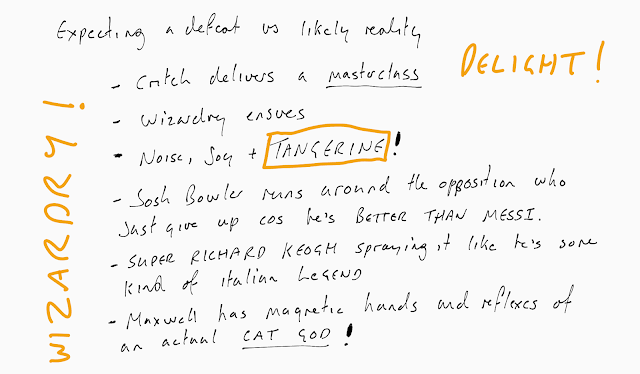 Expecting a defeat vs likely reality
DELIGHT!
- Critch delivers a masterclass
- Wizardry ensues
- Noise, Joy + TANGERINE!
- Josh Bowler runs around the opposition who
just give up cos he's BETTER THAN MESSI.
- SUPER RICHARD KEOGH spraying it like he's some
kind of italian LEGEND
- Maxwell has magnetic hands and reflexes of
an actual CAT GOD!
WIZARDRY!